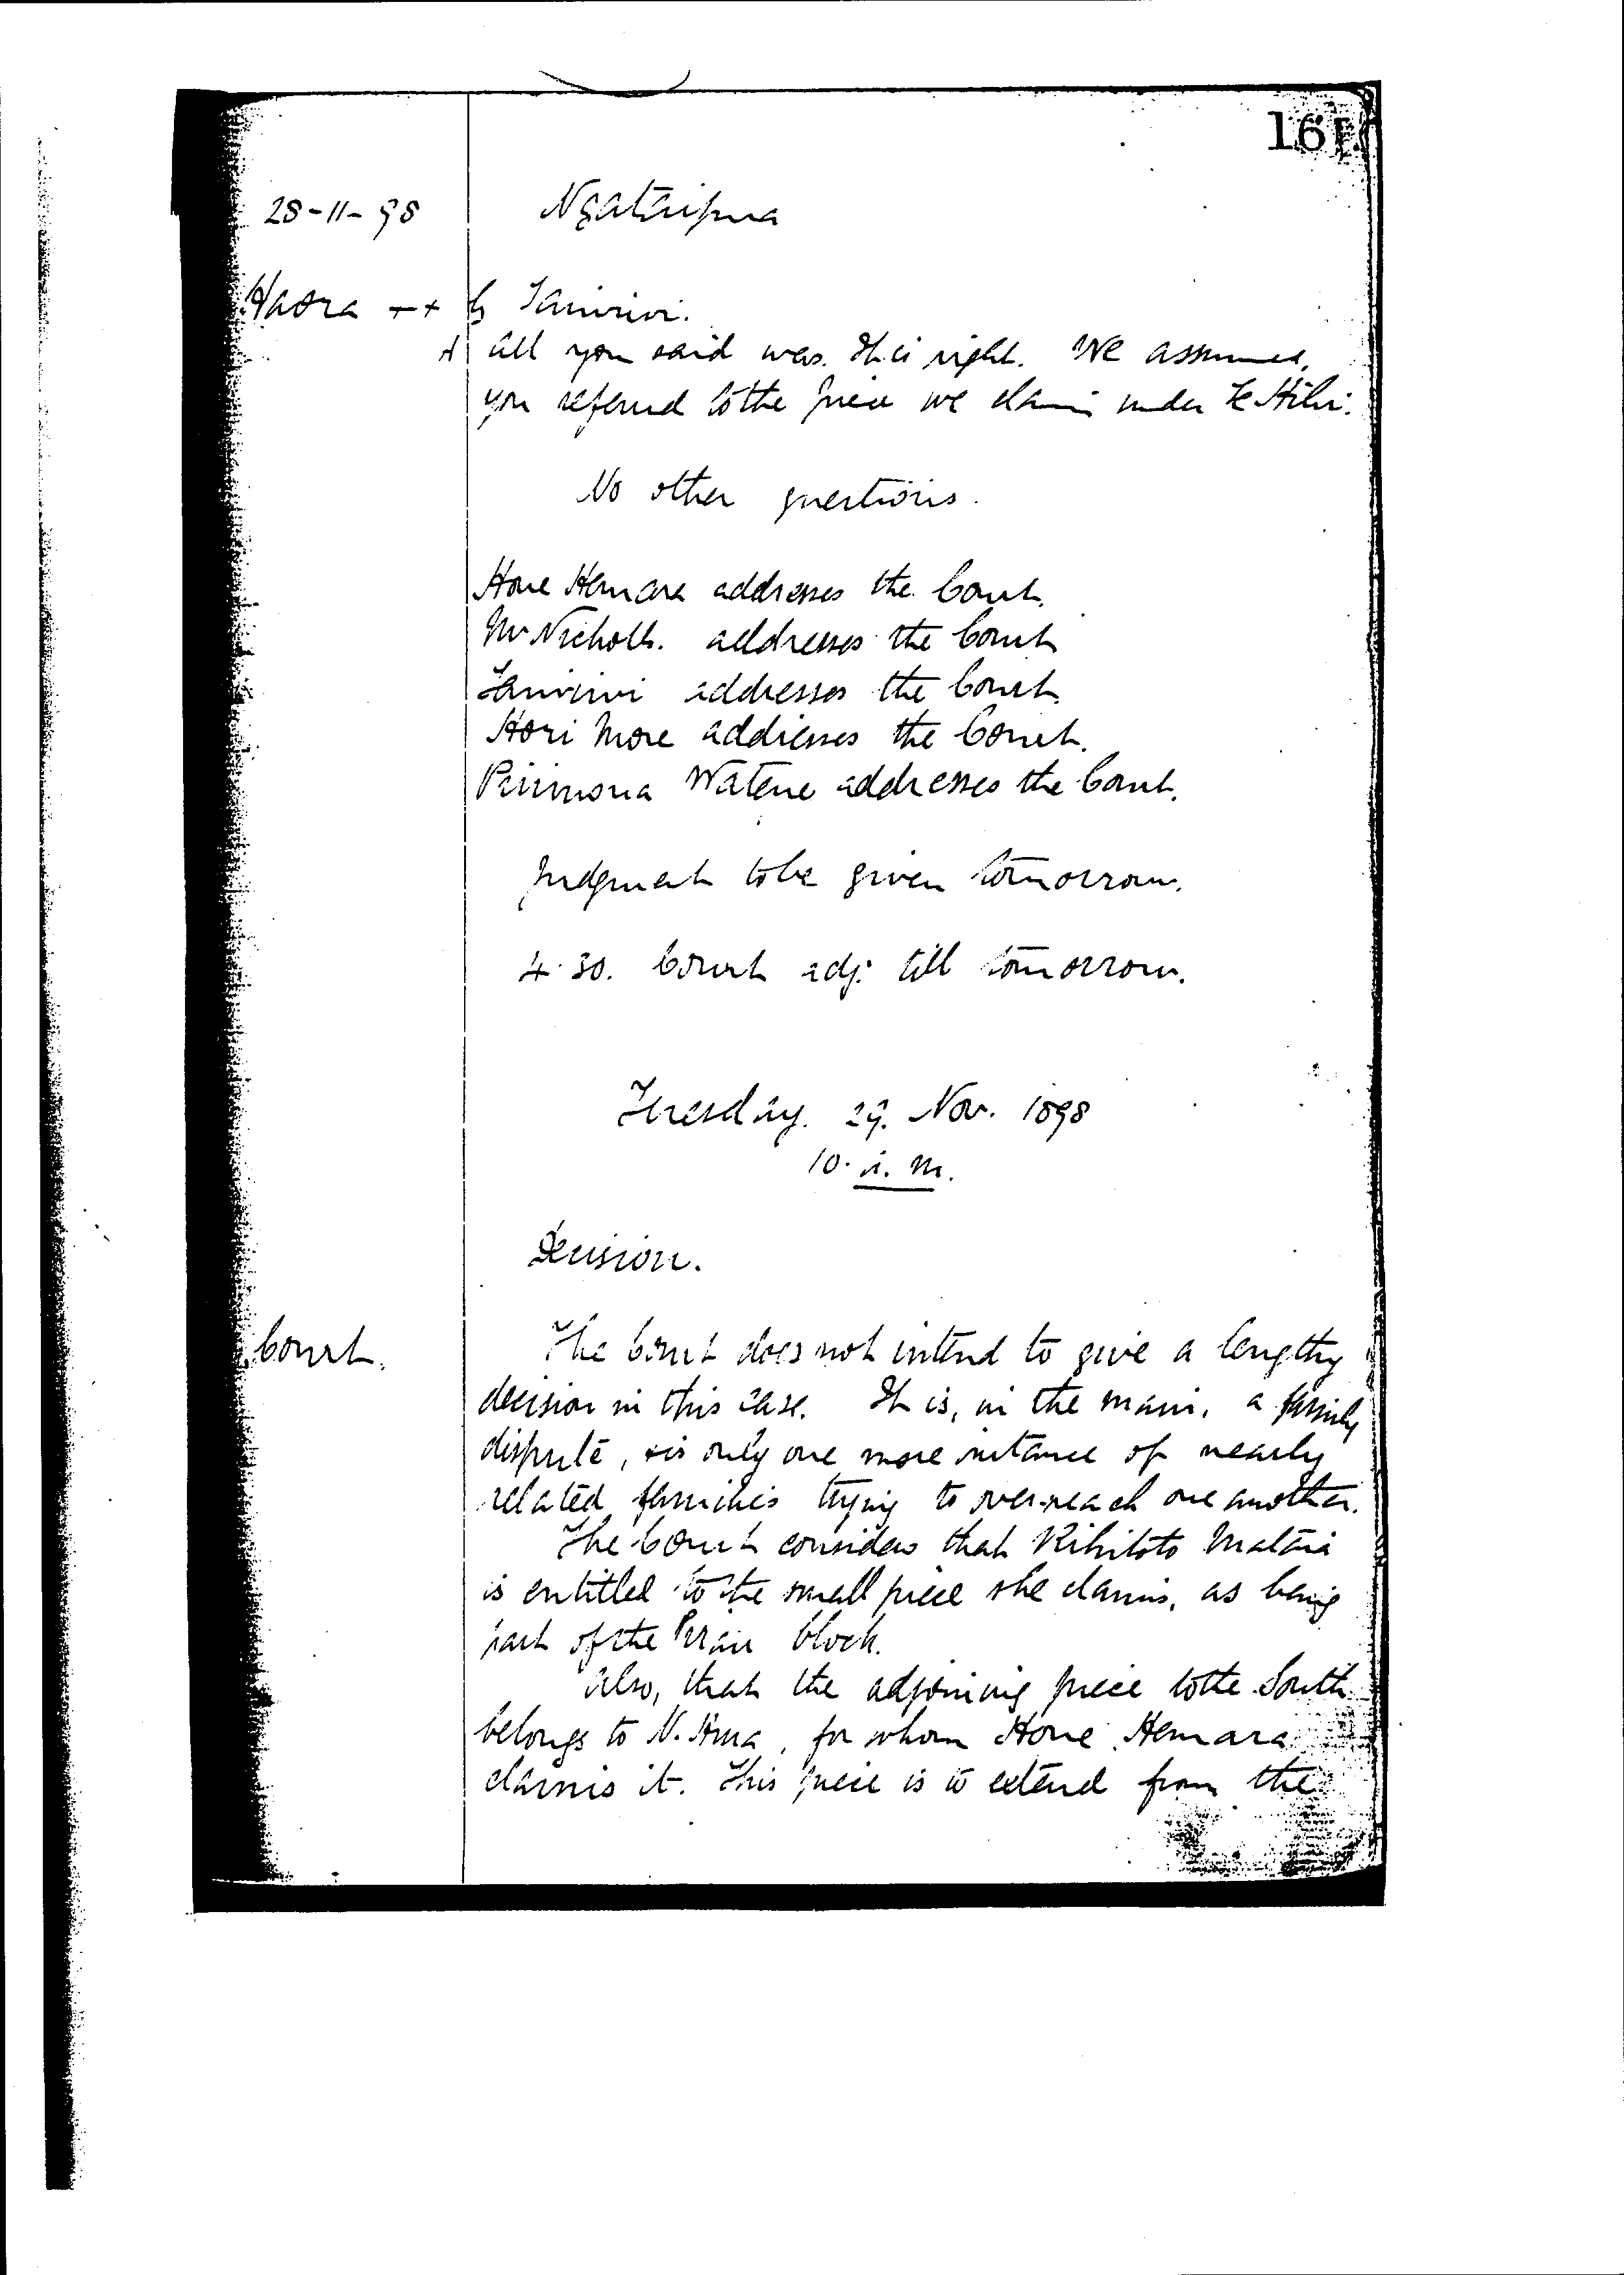 161
28-11-98 Ngataipua
Haora ++ by Tawiwi.
A all you said was. It is right. We assumed,
you referred to the piece we claim under Te Hihi.
No other questions.
Hone Hemara addresses the Court.
Mr Nicholls. addresses the Court
Tawiwi addresses the Court.
Hori More addresses the Court.
Pirimona Watene addresses the Court.
Judgment to be given tomorrow.
4.30. Court adj: till tomorrow.
Tuesday. 29. Nov. 1898
10. a. m.
Decision.
Court. The Court does not intend to give a lengthy
decision in this case. It is, in the main, a family
dispute, & is only one more instance of nearly
related families trying to over-reach one another.
The Court considers that Rihitoto Mataia
is entitled to the small piece she claims, as being
part of the block.
Also, that the adjoining piece to the South
belongs to N. Hua, for whom Hone Hemara
claims it. This piece is to extend from the